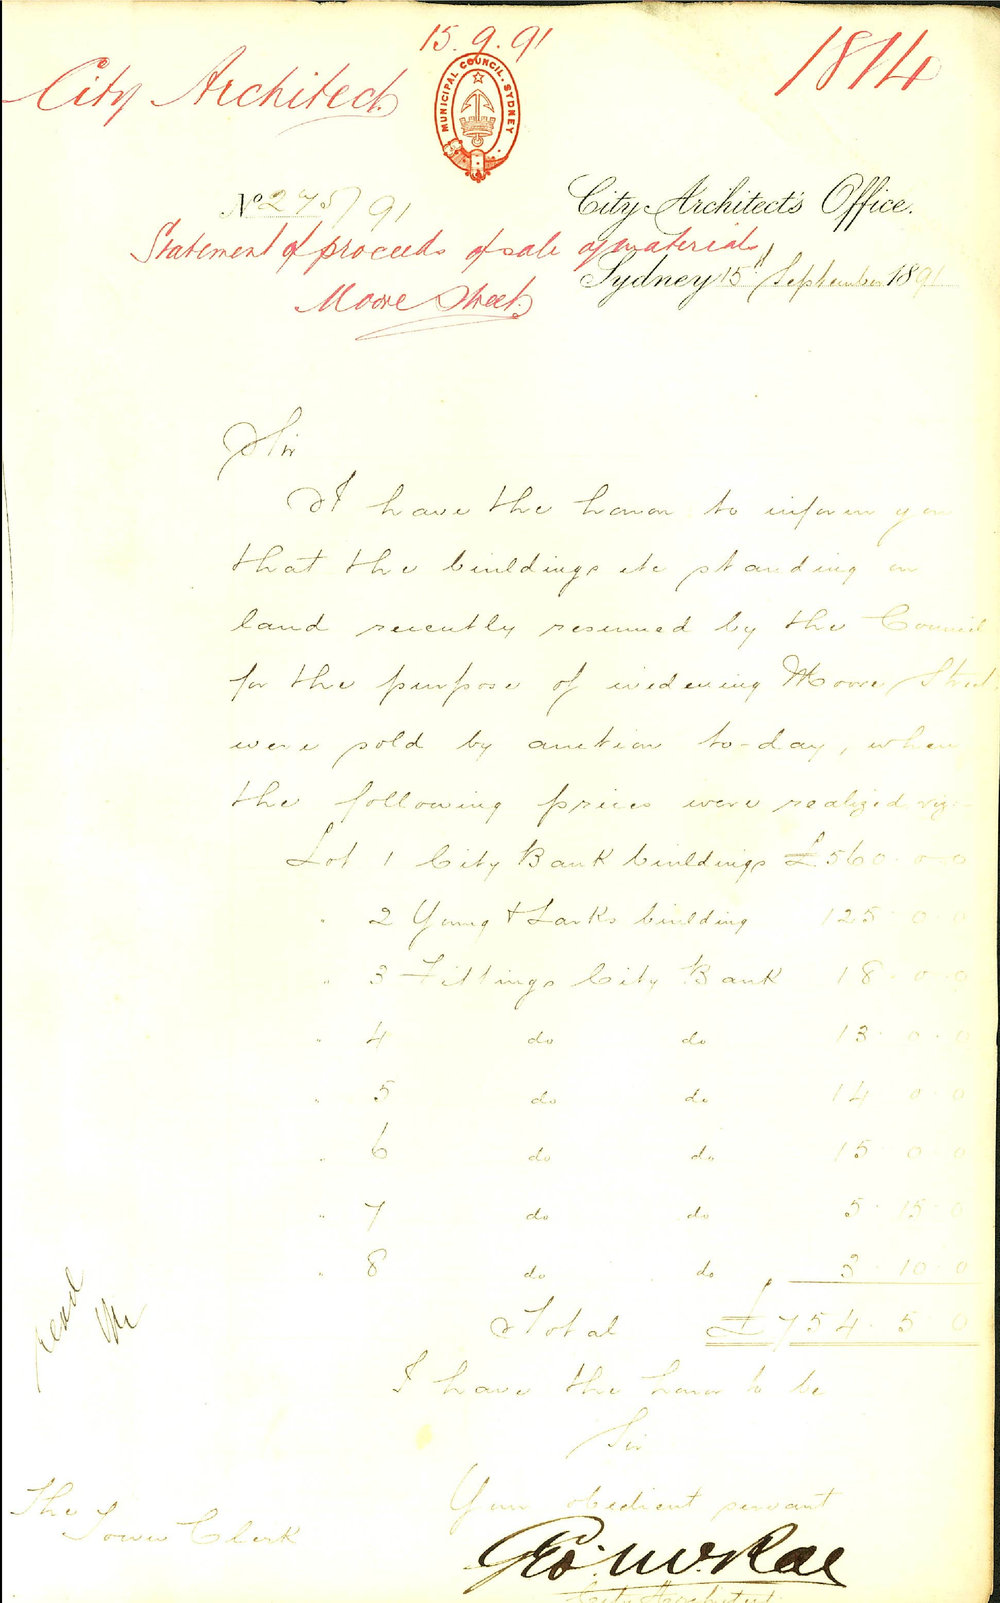 15.9.91
City Architect
1814
MUNICIPAL COUNCIL. SYDNEY
No 275/91
City Architect's Office.
Statement of proceeds of sale of materials,
Sydney 15th September 1891
Moore Street.
Sir
I have the honor to inform you
that the buildings etc standing on
land recently resumed by the Council
for the purpose of widening Moore Street
were sold by auction to-day, when
the following prices were realized viz:-
Lot 1 City Bank buildings £560.0.0
" 2 Young & Larks building 125.0.0
" 3 Fittings City Bank 18.0.0
" 4 do do 13.0.0
" 5 do do 14.0.0
" 6 do do 15.0.0
" 7 do do 5.15.0
" 8 do do 3.10.0
Total £754.5.0
read
I have the honor to be
Sir
Your obedient servant
The
Town Clerk
Geo. McRae
City Architect